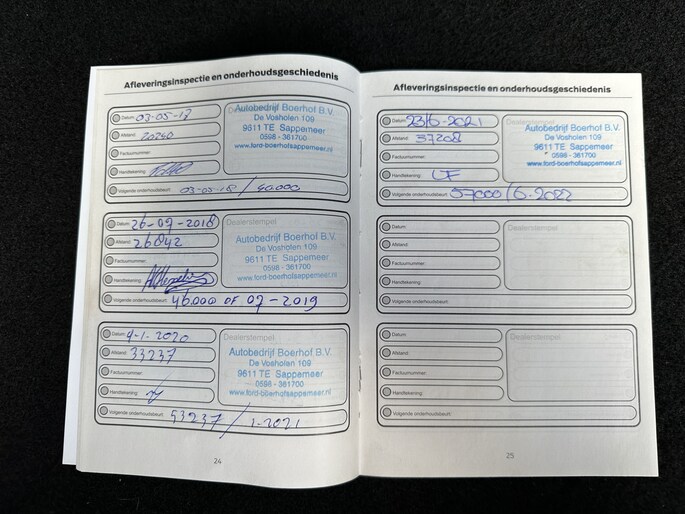 Afleveringsinspectie en onderhoudsgeschiedenis
Datum: 03-05-18
Afstand: 20240
Factuurnummer:
Handtekening:
Volgende onderhoudsbeurt: 03-05-18 / 40.000
Autobedrijf Boerhof B.V.
De Vosholen 109
9611 TE Sappemeer
0598 - 361700
www.ford-boerhofsappemeer.nl
Datum: 26-07-2018
Afstand: 26842
Factuurnummer:
Handtekening:
Volgende onderhoudsbeurt: 46.000 OF 07-2019
Dealerstempel
Autobedrijf Boerhof B.V.
De Vosholen 109
9611 TE Sappemeer
0598 - 361700
www.ford-boerhofsappemeer.nl
Datum: 4-1-2020
Afstand: 33237
Factuurnummer:
Handtekening:
Volgende onderhoudsbeurt: 53237 / 1-2021
Dealerstempel
Autobedrijf Boerhof B.V.
De Vosholen 109
9611 TE Sappemeer
0598 - 361700
www.ford-boerhofsappemeer.nl
24
Afleveringsinspectie en onderhoudsgeschiedenis
Datum: 23/6-2021
Afstand: 37208
Factuurnummer:
Handtekening:
Volgende onderhoudsbeurt: 57000/6-2022
Dealerstempel
Autobedrijf Boerhof B.V.
De Vosholen 109
9611 TE Sappemeer
0598 - 361700
www.ford-boerhofsappemeer.nl
Datum:
Afstand:
Factuurnummer:
Handtekening:
Volgende onderhoudsbeurt:
Dealerstempel
Datum:
Afstand:
Factuurnummer:
Handtekening:
Volgende onderhoudsbeurt:
Dealerstempel
25